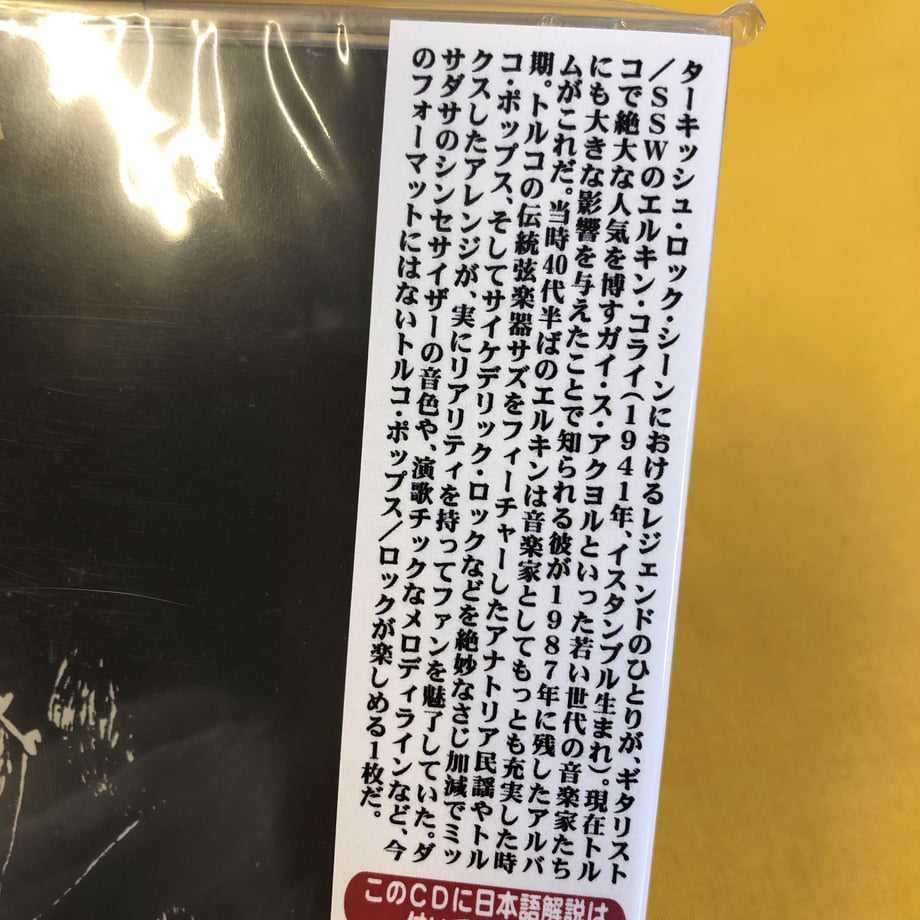 ターキッシュ・ロック・シーンにおけるレジェンドのひとりが、ギタリスト
／SSWのエルキン・コライ（1941年、イスタンブル生まれ）。現在トル
コで絶大な人気を博すガイ・ス・アクヨルといった若い世代の音楽家たち
にも大きな影響を与えたことで知られる彼が1987年に残したアルバ
ムがこれだ。当時40代半ばのエルキンは音楽家としてもっとも充実した時
期。トルコの伝統弦楽器サズをフィーチャーしたアナトリア民謡やトル
コ・ポップス、そしてサイケデリック・ロックなどを絶妙なさじ加減でミッ
クスしたアレンジが、実にリアリティを持ってファンを魅了していた。ダ
サダサのシンセサイザーの音色や、演歌チックなメロディラインなど、今
のフォーマットにはないトルコ・ポップス／ロックが楽しめる1枚だ。
このCDに日本語解説は